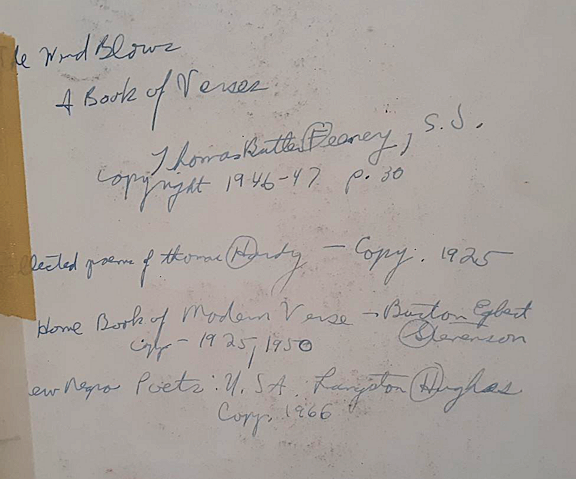 he Wind Blows
A Book of Verses
Thomas Butler Feeney, S.J.
Copyright 1946-47 p. 30
llected poems of Thomas Hardy - Copy. 1925
Home Book of Modern Verse - Burton Egbert
Stevenson
Copy - 1925, 1950
ew Negro Poets: U.SA Langston Hughes
Copy. 1966